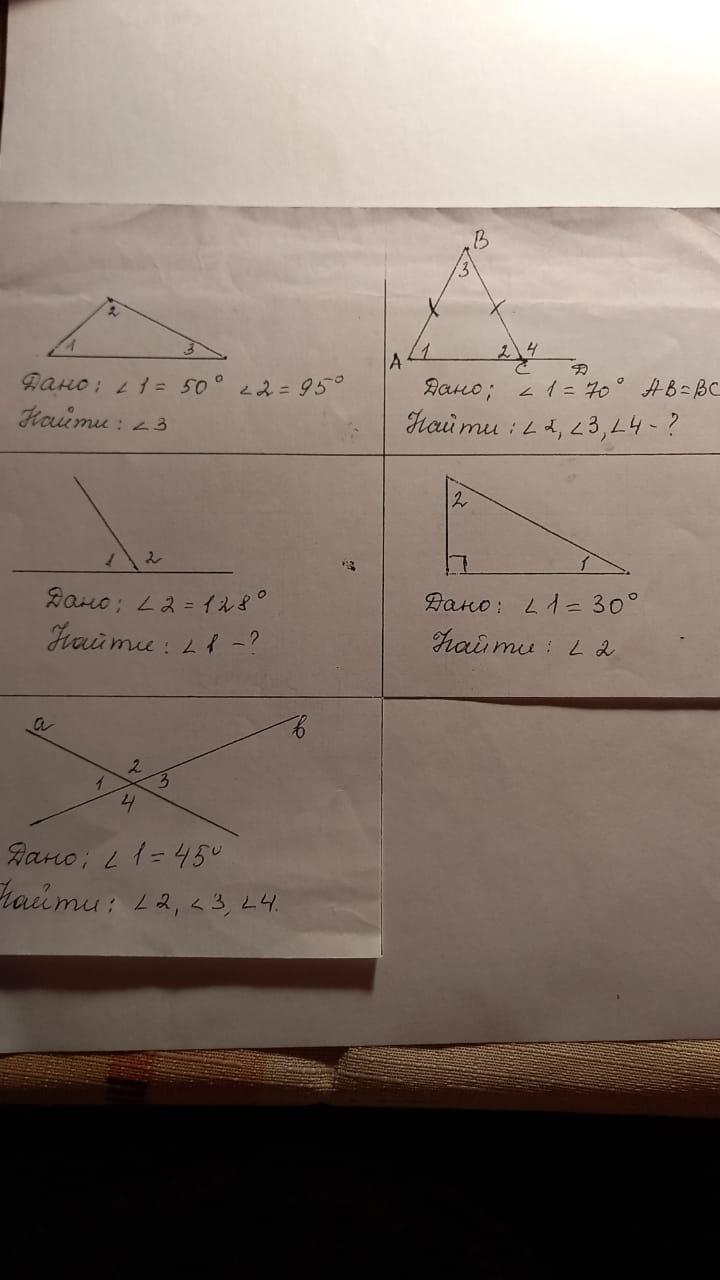 2
1
3
Дано; ∠1 = 50° ∠2 = 95°
Найти: ∠3
B
3
A 1 2 4
C D
Дано; ∠1 = 70° AB = BC
Найти: ∠2, ∠3, ∠4 - ?
1 2
Дано; ∠2 = 128°
Найти: ∠1 - ?
2
1
Дано: ∠1 = 30°
Найти: ∠2
a в
2
1 3
4
Дано; ∠1 = 45°
Найти: ∠2, ∠3, ∠4.